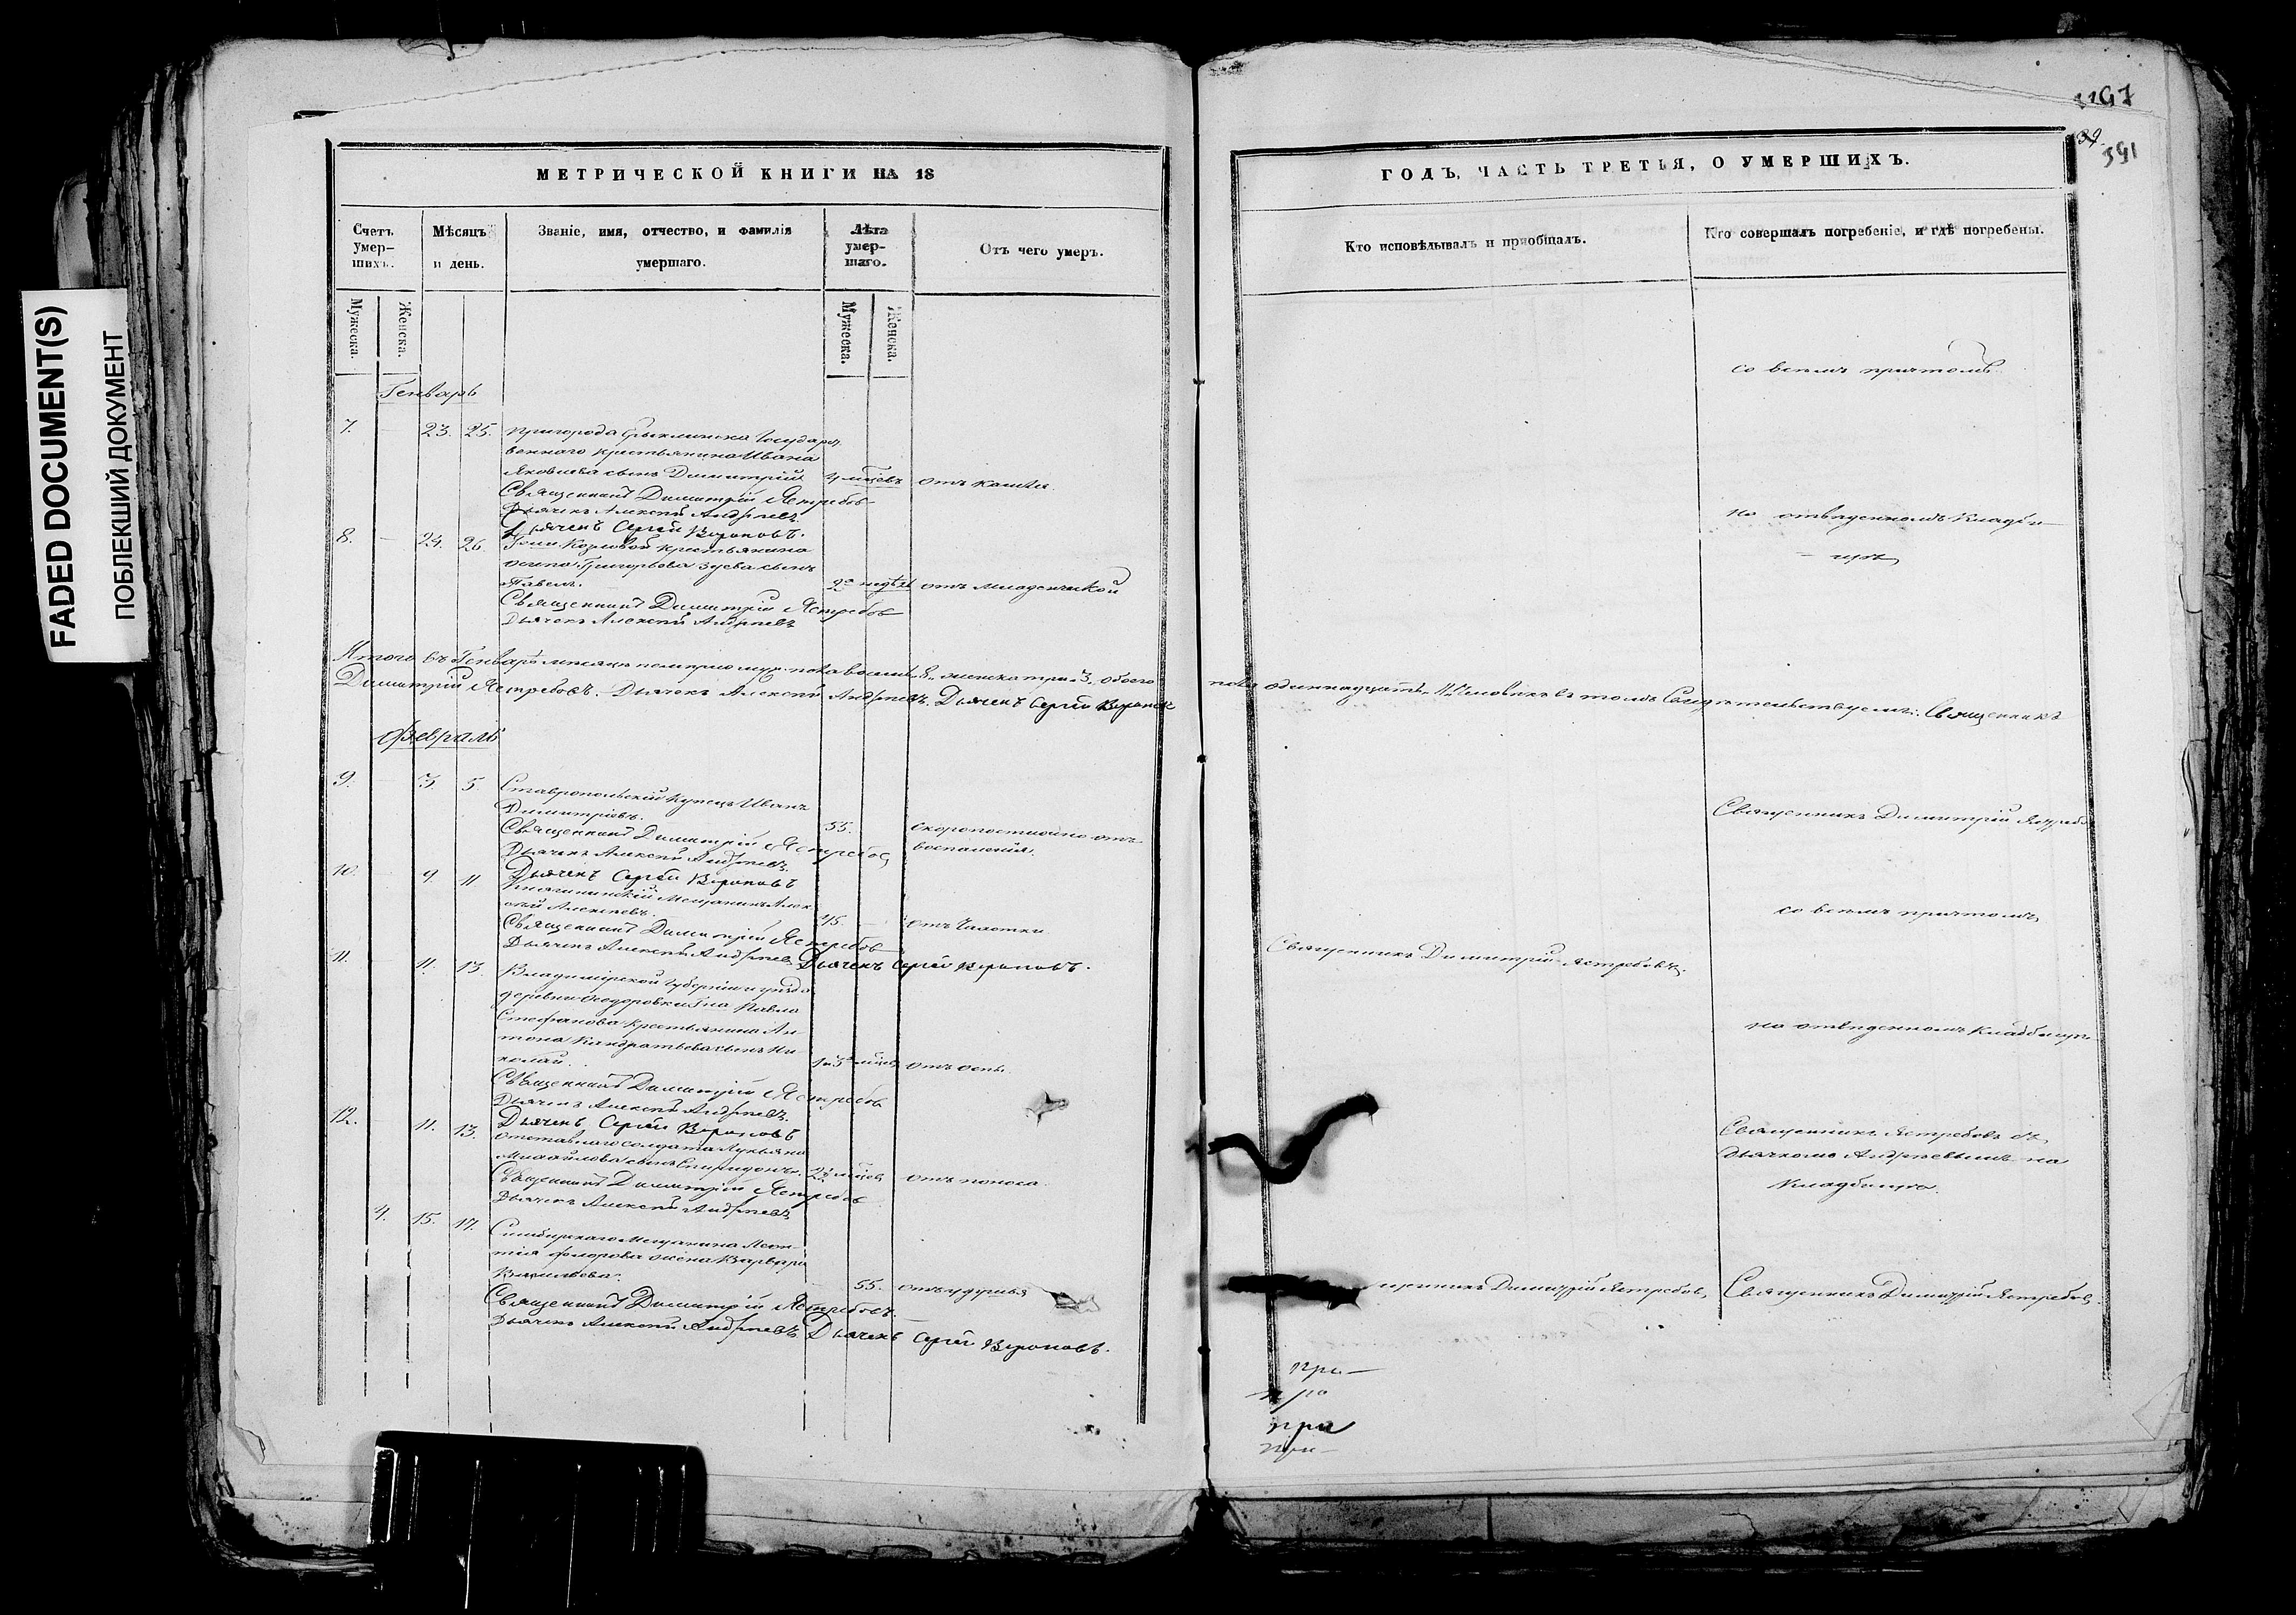 FADED DOCUMENT(S)
ПОБЛЕКШИЙ ДОКУМЕНТ
МЕТРИЧЕСКОЙ КНИГИ НА 18
Счетъ умер-шихъ.
Мѣсяцъ и день.
Званіе, имя, отчество, и фамилія умершаго.
Лѣта умер-шаго.
Отъ чего умеръ.
Мужеска.
Женска.
Мужеска.
Женска.
Генварь
7. 23. 25. Пригорода Ерыклинска Государст
веннаго крестьянина Ивана
Яковлева сынъ Димитрій
отъ кашля.
Священникъ Димитрій Ястребовъ
Дьячекъ Алексѣй Андреевъ.
Дьячекъ Сергѣй Вороновъ.
8. 24. 26. Козловой крестьянина
Осипа Григорьева Зуева сынъ
Павелъ. 2 недѣль отъ младенческой
Священникъ Димитрій Ястребовъ
Дьячекъ Алексѣй Андреевъ
Итого въ Генварѣ мѣсяцѣ померло муж. пола восемь 8, женска три 3, обоего
Димитрій Ястребовъ. Дьячекъ Алексѣй Андреевъ. Дьячекъ Сергѣй Вороновъ
Февраль
9. 3. 5. Ставропольскій Купецъ Иванъ
Димитріевъ. 55. скоропостижно отъ
воспаленія.
Священникъ Димитрій Ястребовъ
Дьячекъ Алексѣй Андреевъ.
Дьячекъ Сергѣй Вороновъ
10. 9. 11 Княгининскій Мещанинъ Алек
сѣй Алексѣевъ. 45. отъ Чахотки
Священникъ Димитрій Ястребовъ
Дьячекъ Алексѣй Андреевъ Дьячекъ Сергѣй Вороновъ.
11. 11. 13. Владимірской Губерніи и уѣзда
деревни Ѳедоровки Гна Павла
Стефанова крестьянина Ан-
тона Кандратьева сынъ Ни-
колай. отъ оспы.
Священникъ Димитрій Ястребовъ
Дьячекъ Алексѣй Андреевъ.
Дьячекъ Сергѣй Вороновъ
12. 11. 13. отставнаго солдата Лукьяна
Михайлова сынъ Спиридонъ. отъ поноса.
Священникъ Димитрій Ястребовъ
Дьячекъ Алексѣй Андреевъ
4. 15. 17. Симбирскаго Мещанина Леон-
тія Федорова жена Варвара
Васильева. 55. отъ удушья
Священникъ Димитрій Ястребовъ.
Дьячекъ Алексѣй Андреевъ Дьячекъ Сергѣй Вороновъ.
39
391
ГОДЪ, ЧАСТЬ ТРЕТЬЯ, О УМЕРШИХЪ.
Кто исповѣдывалъ и пріобщалъ.
Кто совершалъ погребеніе, и гдѣ погребены.
со всѣмъ причтомъ
на отведенномъ Кладби
щѣ
пола одиннадцать 11 человѣкъ въ томъ Свидѣтельствуемъ: Священникъ
Священникъ Димитрій Ястребо
со всѣмъ причтомъ
Священникъ Димитрій Ястребовъ.
на отведенномъ Кладбищѣ
Священникъ Ястребовъ съ
дьячкомъ Андреевымъ на
Кладбищѣ.
щенникъ Димитрій Ястребовъ, Священникъ Димитрій Ястребовъ.
при
при